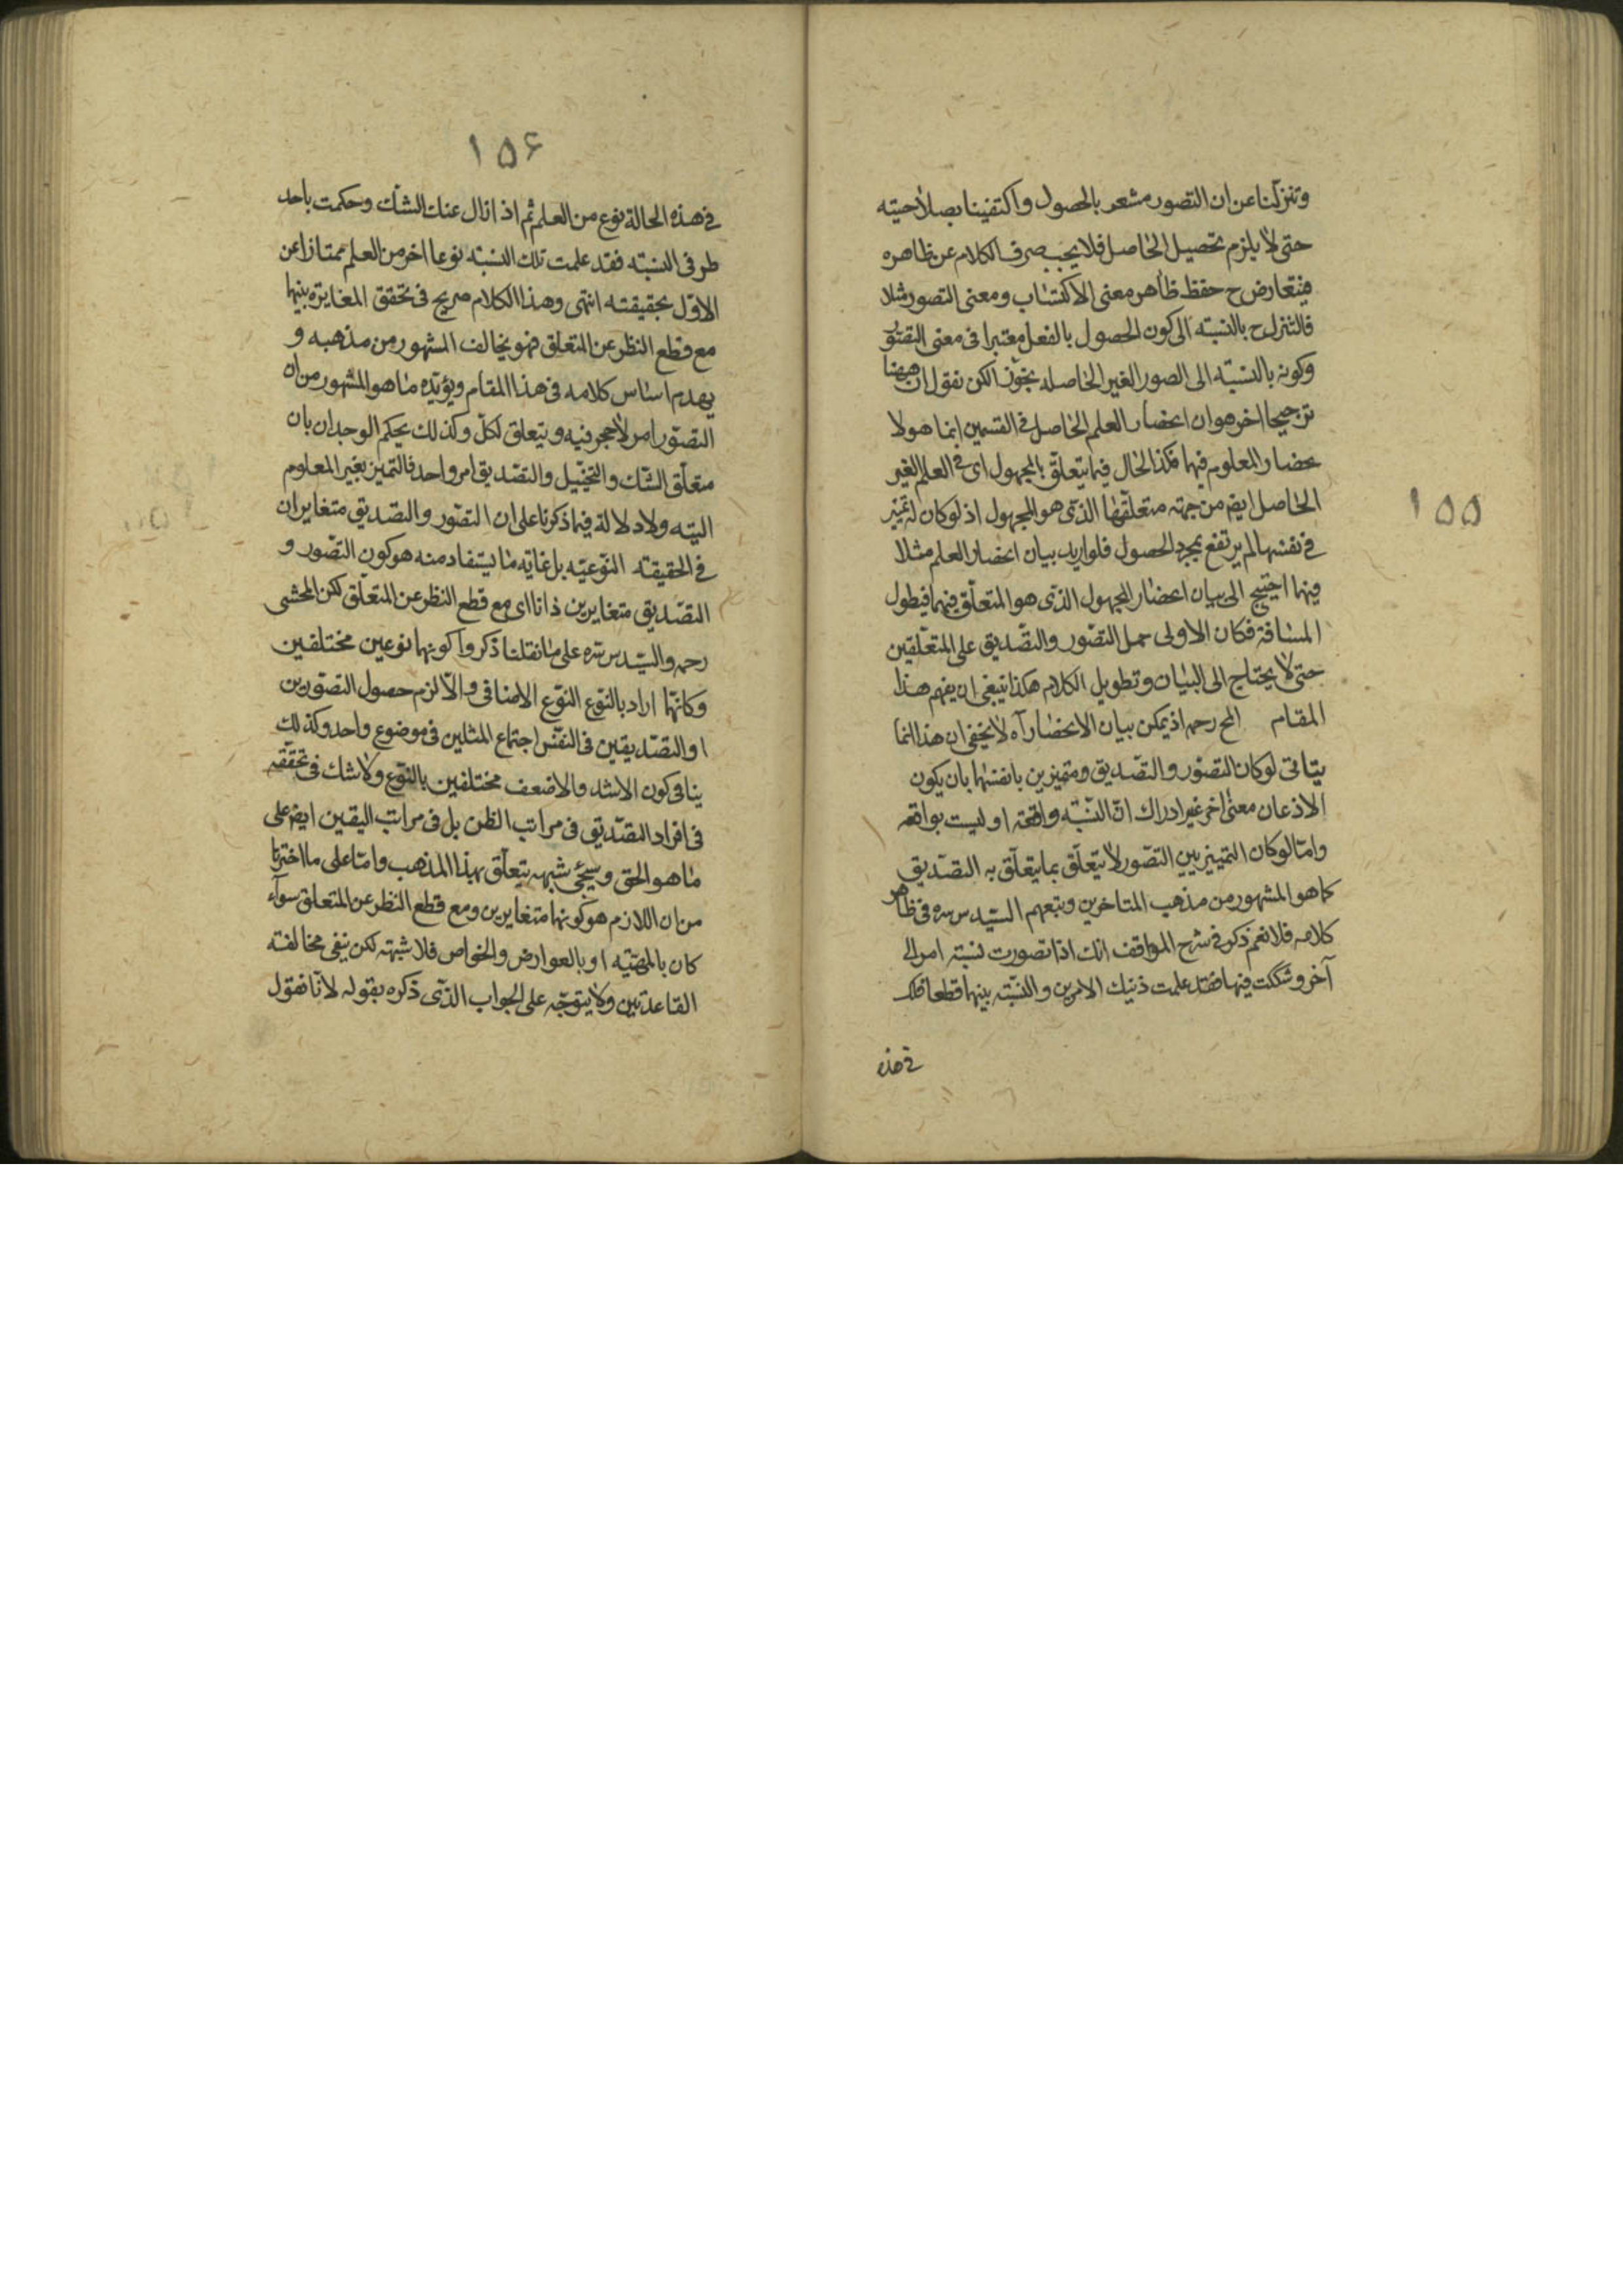 وتنزلنا عن ان التصور مشعر بالحصول واكتفينا بصلاحيته
حتى لا يلزم تحصيل الحاصل فلا يجب صرف الكلام عن ظاهره
فيتعارض ح حفظ ظاهر معنى الاكتساب ومعنى التصور مثلا
فالتنزل ح بالنسبته الى كون الحصول بالفعل معتبرا فى معنى التصور
وكونه بالنسبته الى الصور الغير الحاصله تجوزا لكن نقول ان ههنا
ترجيحا اخر هو ان انحصار العلم الحاصل فى القسمين انما هو لا
نحصار المعلوم فيهما فكذا الحال فيما يتعلق بالمجهول اى فى العلم الغير
الحاصل ايض من جهته متعلقها الذى هو المجهول اذ لو كان له تميز
فى نفسها لم يرتفع بمجرد الحصول فلو اريد بيان انحصار العلم مثلا
فيهما احتيج الى بيان انحصار المجهول الذى هو المتعلق فيهما فيطول
المسافة فكان الاولى حمل التصور والتصديق على المتعلقين
حتى لا يحتاج الى البيان وتطويل الكلام هكذا ينبغى ان يفهم هذا
المقام المح رحمه اذ يمكن بيان الانحصار آه لا يخفى ان هذا انما
يتاتى لو كان التصور والتصديق ومتميزين بانفسهما بان يكون
الاذعان معنى اخر غير ادراك ان النسبته واقعة او ليست بواقعه
واما لو كان التمييز بين التصور لا يتعلق بما يتعلق به التصديق
كما هو المشهور من مذهب المتاخرين وتبعهم السيد س سره فى ظاهر
كلامه فلا نعم ذكر فى شرح المواقف انك اذا تصورت نسبته امر الى
آخر وشككت فيها فقد علمت ذينك الامرين والنسبته بينهما قطعا فلك
فى هذه
١٥٥
١٥۶
فى هذه الحالة نوع من العلم ثم اذا زال عنك الشك وحكمت باحد
طرفى النسبته فقد علمت تلك النسبته نوعا اخر من العلم ممتازا عن
الاول بحقيقته انتهى وهذا الكلام صريح فى تحقق المغايرة بينهما
مع قطع النظر عن المتعلق فهو يخالف المشهور من مذهبه و
يهدم اساس كلامه فى هذا المقام ويؤيده ما هو المشهور من ان
التصور امر لا حجر فيه ويتعلق لكل وكذلك يحكم الوجدان بان
متعلق الشك والتخييل والتصديق امر واحد فالتميز بغير المعلوم
البته ولا دلالة فيما ذكرنا على ان التصور والتصديق متغايران
فى الحقيقته النوعيه بل غايه ما يستفاد منه هو كون التصور و
التصديق متغايرين ذاتا اى مع قطع النظر عن المتعلق لكن المحشى
رحمه والسيد س سره على ما نقلنا ذكروا كونهما نوعين مختلفين
وكانهما اراد بالنوع النوع الاضافى والا لزم حصول التصورين
او التصديقين فى النفس اجتماع المثلين فى موضوع واحد وكذلك
ينافى كون الاشد والاضعف مختلفين بالنوع ولا شك فى تحققه
فى افراد التصديق فى مراتب الظن بل فى مراتب اليقين ايض على
ما هو الحق وسيجئ شبهه يتعلق بهذا المذهب واما على ما اخترنا
من ان اللازم هو كونهما متغايرين ومع قطع النظر عن المتعلق سوآء
كان بالمهيته او بالعوارض والخواص فلا شبهته لكن ينفى مخالفته
القاعدتين ولا يتوجه على الجواب الذى ذكره بقوله لانا نقول